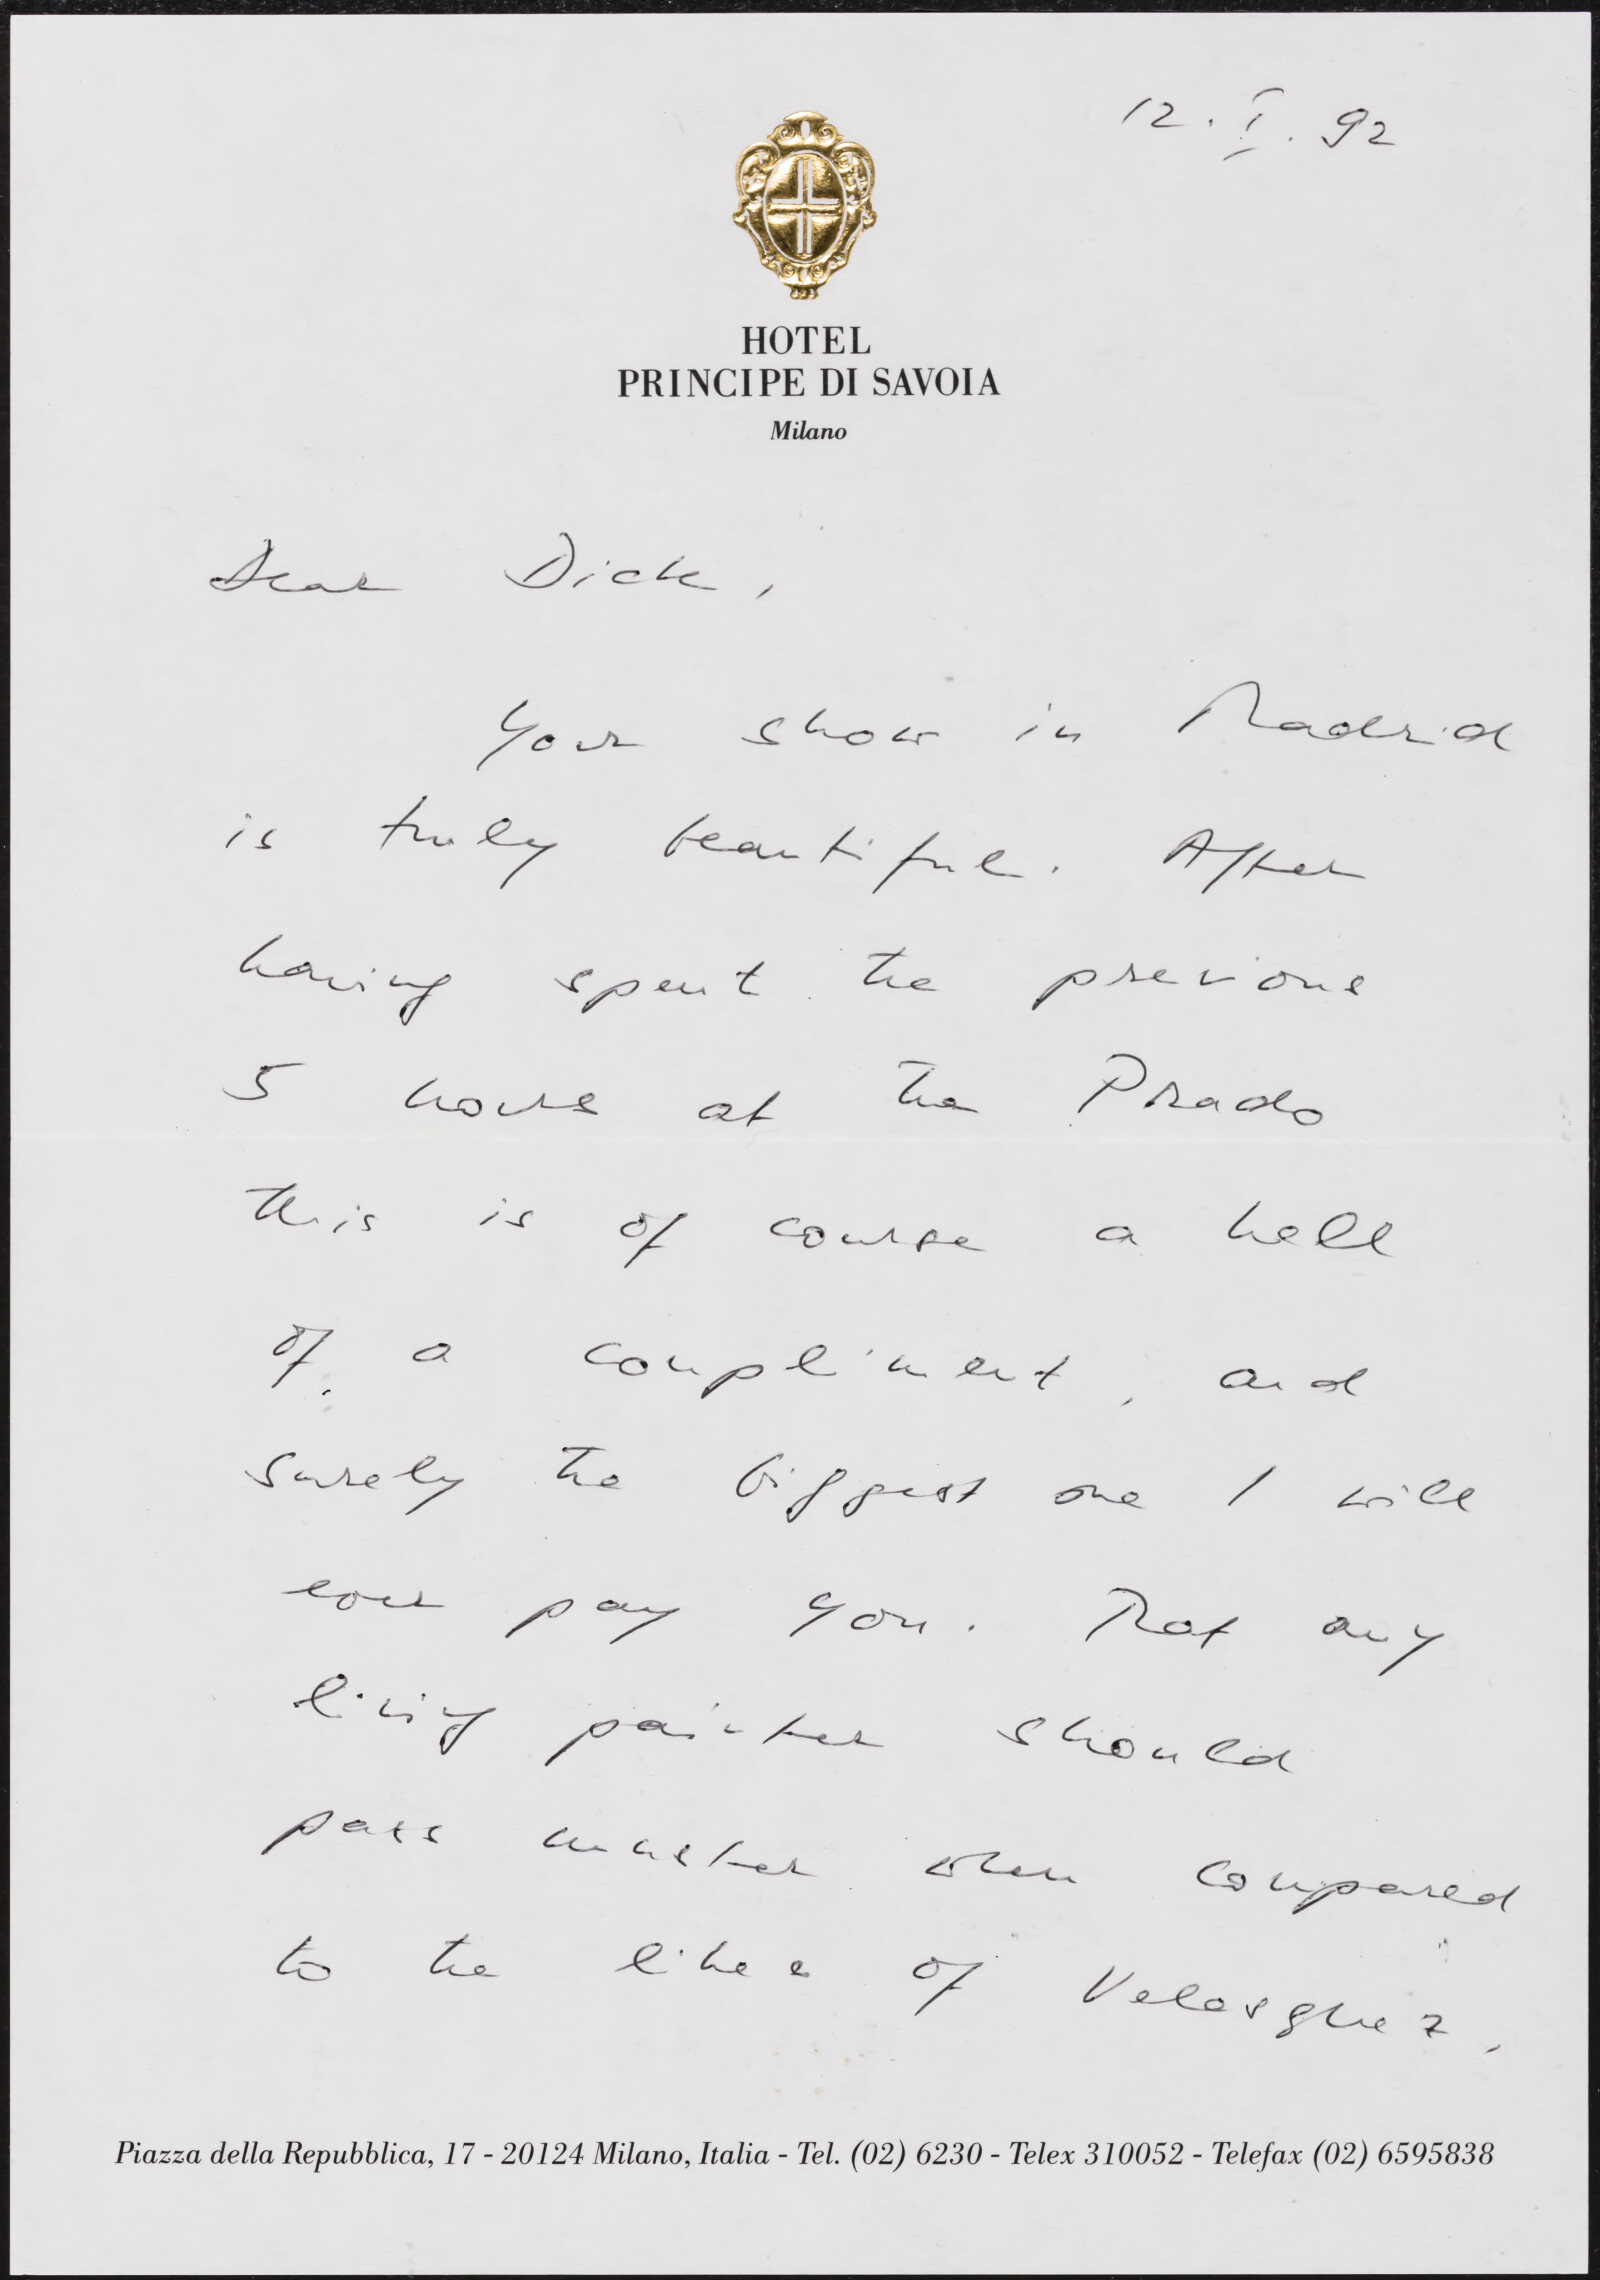 12. I. 92
HOTEL
PRINCIPE DI SAVOIA
Milano
Dear Dick,
Your show in Madrid
is truly beautiful. After
having spent the previous
5 hours at the Prado
this is of course a hell
of a compliment, and
surely the biggest one I will
ever pay you. That any
living painter should
pass muster when compared
to the likes of Velasquez,
Piazza della Repubblica, 17 - 20124 Milano, Italia - Tel. (02) 6230 - Telex 310052 - Telefax (02) 6595838